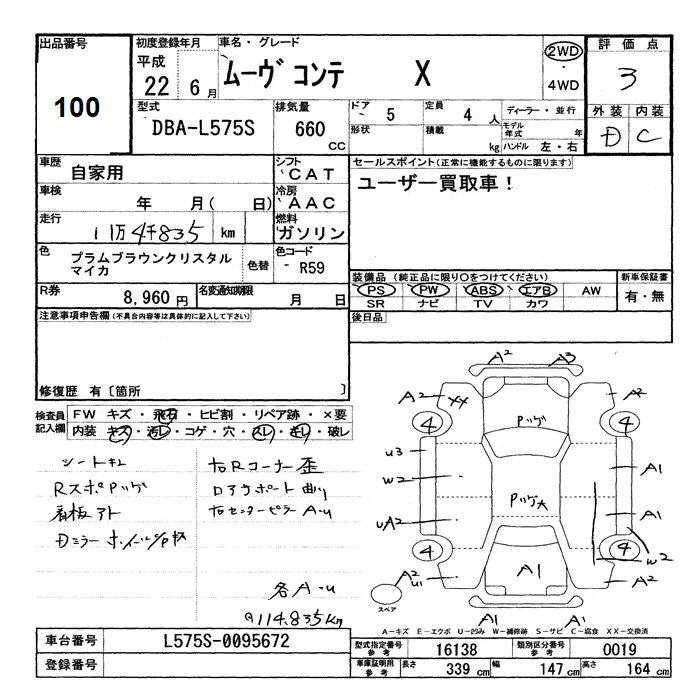 出品番号
100
初度登録年月
平成
22 6月
車名・グレード
ムーヴ コンテ X
2WD
・
4WD
評価点
3
外装 内装
D C
型式
DBA-L575S
排気量
660
CC
ドア
5
定員
4 人
ディーラー・並行
形状
積載
kg
モデル年式
年
ハンドル 左・右
車歴
自家用
シフト
CAT
セールスポイント(正常に機能するものに限ります)
ユーザー買取車!
車検
年 月( 日)
冷房
AAC
走行
11万4千835 km
燃料
ガソリン
色
プラムブラウンクリスタル
マイカ
色替
色コード
R59
R券
8,960円
名変通知期限
月 日
装備品(純正品に限り○をつけてください)
PS PW ABS エアB AW
SR ナビ TV カワ
新車保証書
有・無
注意事項申告欄(不具合内容等は具体的に記入して下さい)
後日品
修復歴 有〔箇所 〕
検査員
記入欄
FW キズ・飛石・ヒビ割・リペア跡・×要
内装 キズ・汚レ・コゲ・穴・スレ・キレ・破レ
RスポPッゲ
看板アト
右Rコーナー歪
ロアサポート曲り
右センターピラーA.u
各A・u
114.835km
A2 A3
A2 XX A2
4 4
Pッゲ
u3
W2 A1
Pッゲ大
uA2 A1
4 4
W2
A2 u1 A1 A2
スペア
A1 A1
A―キズ E―エクボ U―凹み W―補修跡 S―サビ C―腐食 XX―交換済
車台番号
L575S-0095672
登録番号
型式指定番号
参考
16138
類別区分番号
参考
0019
車庫証明用
参考
長さ
339 cm
幅
147 cm
高さ
164 cm